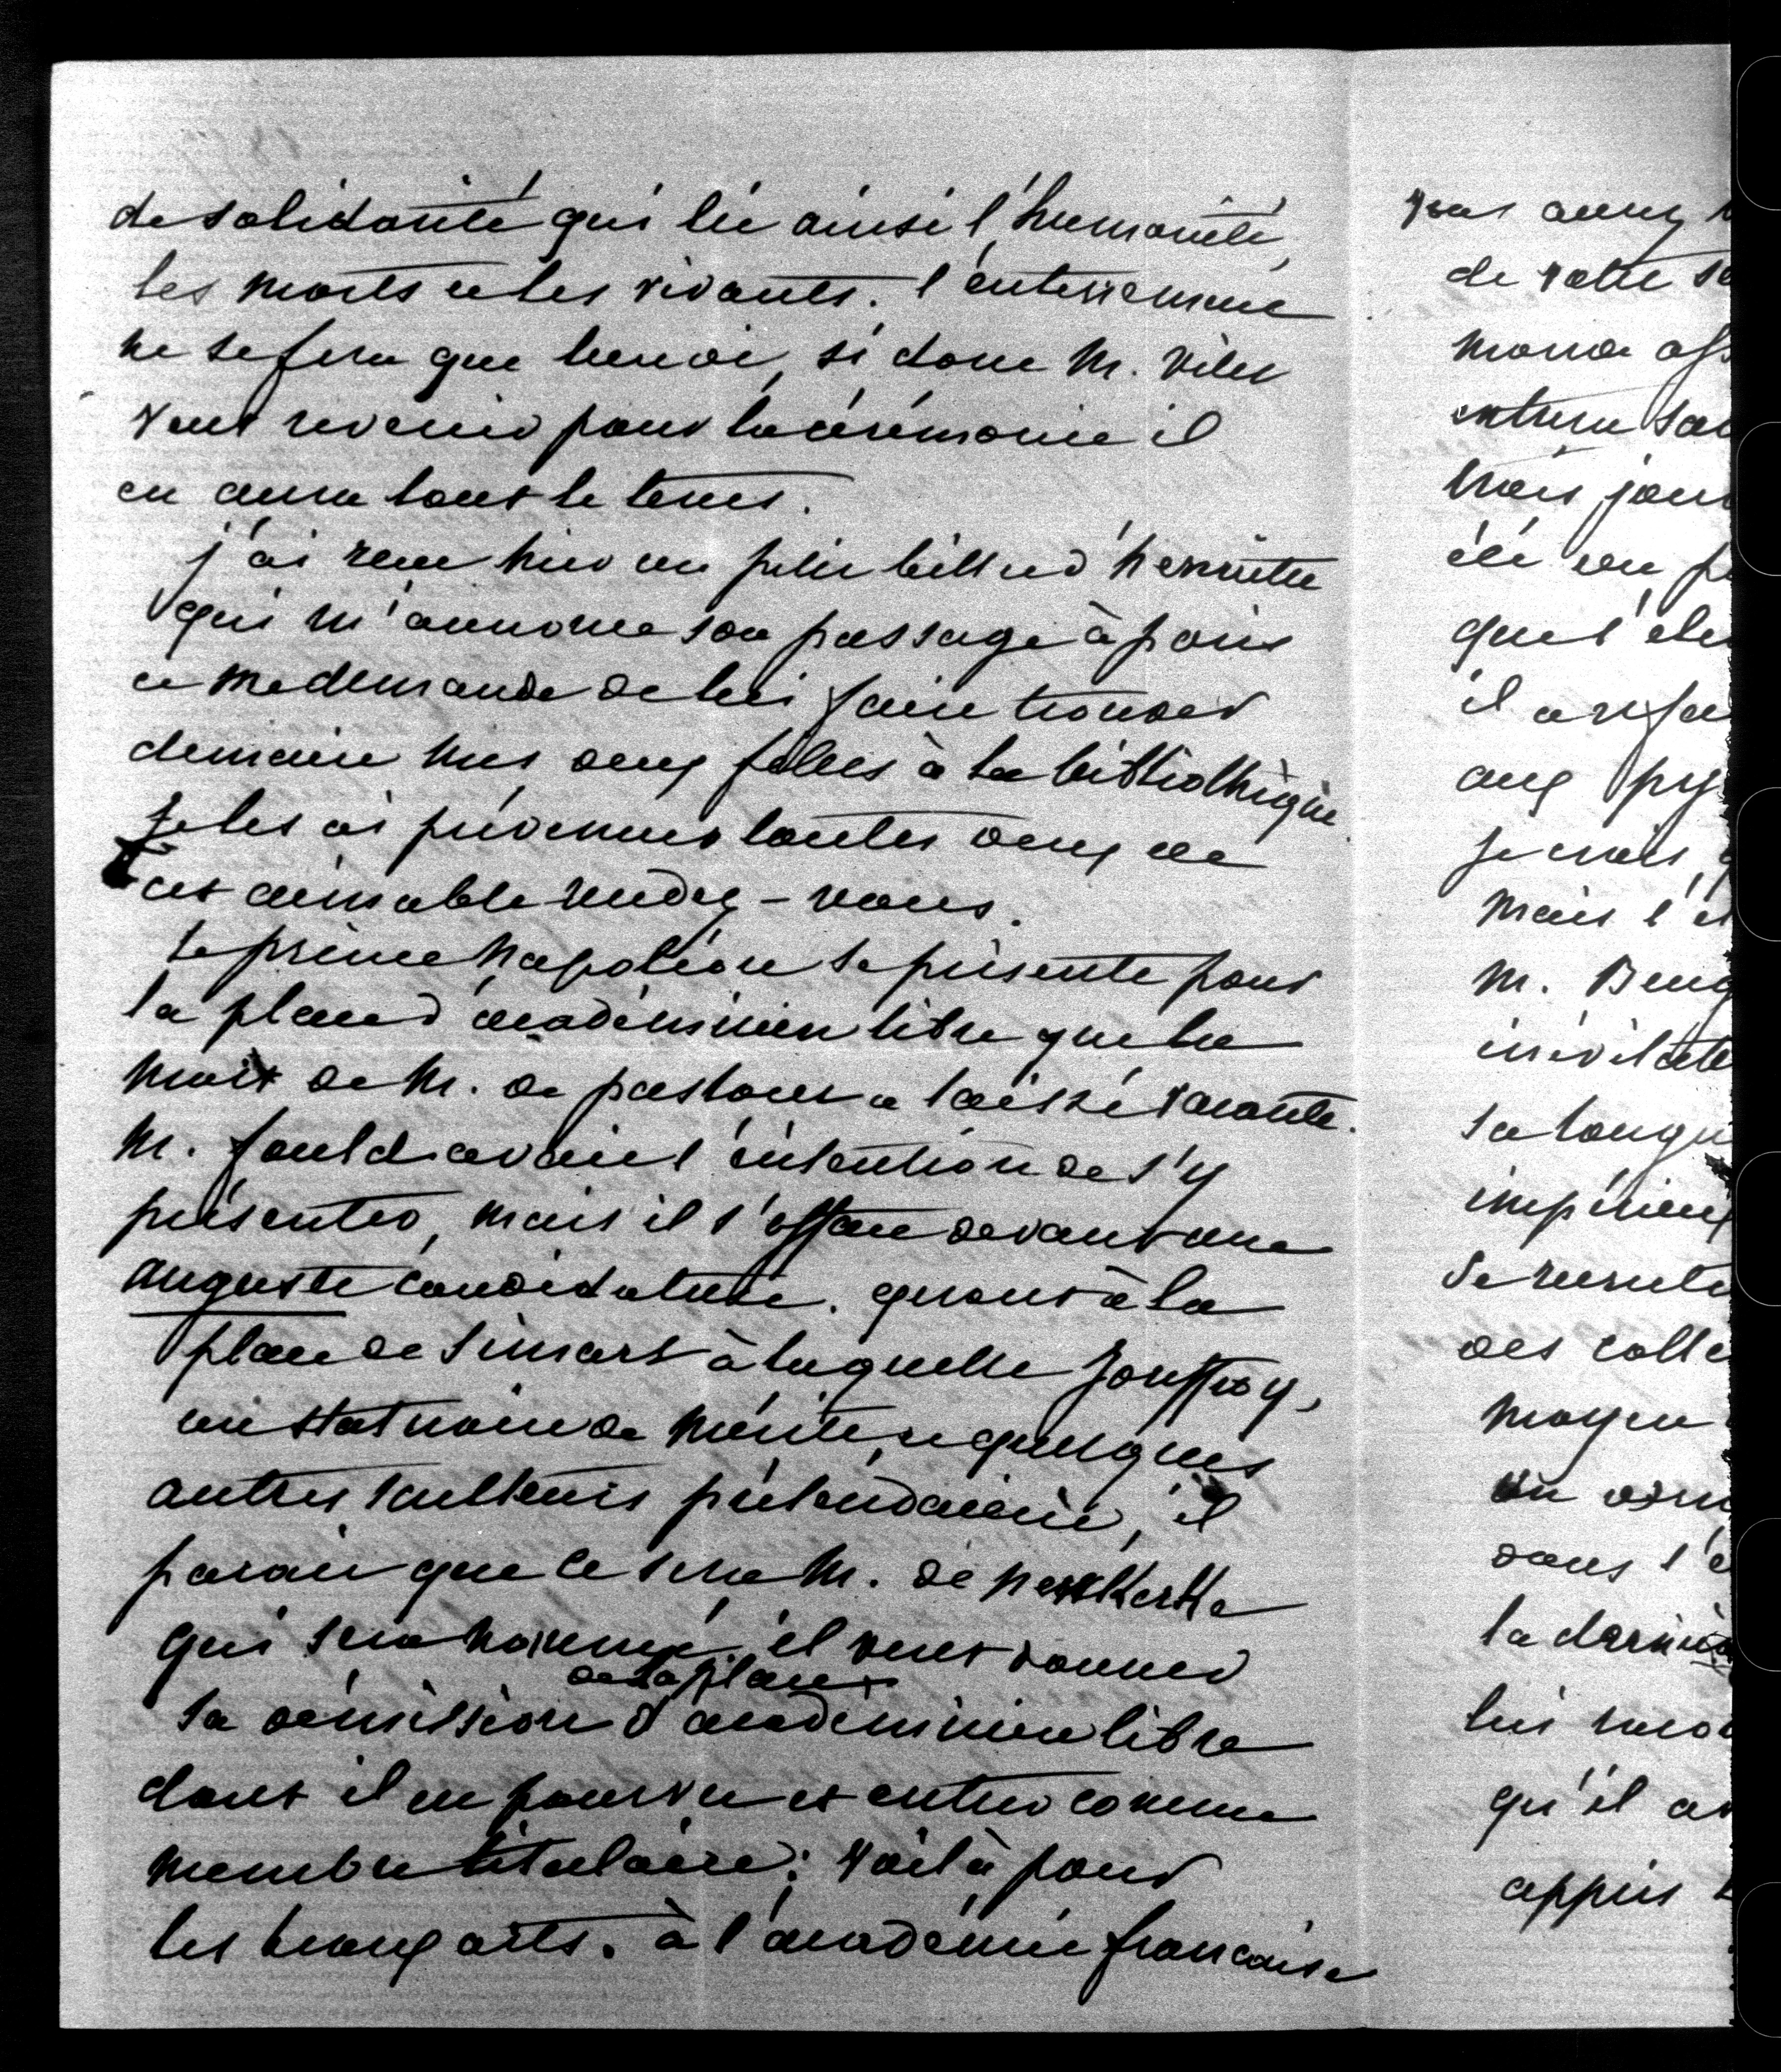 de solidarité qui lie ainsi l'humanité,
les morts et les vivants. l'enterrement
ne se fera que lundi, si donc M. Vitet
veut revenir pour la cérémonie il
en aura tout le tems.
j'ai reçu hier un petit billet d'henriette
qui m'annonce son passage à paris
et me demande de lui faire trouver
demain mes deux filles à la bibliothèque.
Je les ai prévenues toutes deux de
cet aimable rendez-vous.
Le prince Napoléon se présente pour
la place d'académicien libre que la
mort de M. de pastoret a laissé vacante.
M. fould avait l'intention de s'y
présenter, mais il s'efface devant une
auguste candidature. quant à la
place de Simart à laquelle Jouffroy,
un statuaire de mérite, et quelques
autres sculteurs prétendaient, il
parait que ce sera M. de Neukerke
qui sera nommé, il veut donner
de la place
sa démission d'académicien libre
dont il est pourvu et entrer comme
membre titulaire; voilà pour
les beaux arts. à l'académie francaise
vous aurez
de votre
monde
entrera
trois jour
été un
que l'
il a
aux
je crois,
mais l'
M.
inévitable
sa longu
impérieux
se
des colle
moyen
un
dans l'
la dernière
lui
qu'il a
appris